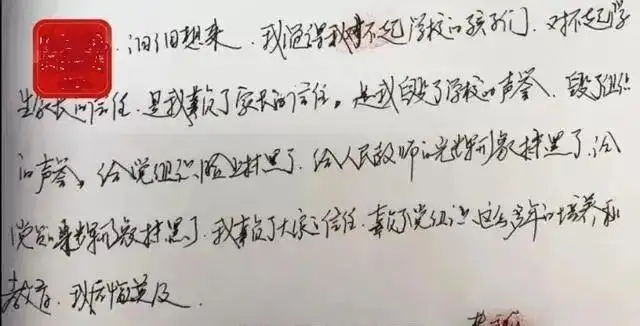 泪泪想来，我觉得我对不起学校的孩子们，对不起学
生家长的信任，是我辜负了家长的信任。是我毁了学校的声誉，毁了组织
的声誉，给党组织脸上抹黑了，给人民教师的光辉形象抹黑了，给
党员的光辉形象抹黑了，我辜负了大家的信任，辜负了党组织这么多年的培养和
教育，我后悔莫及